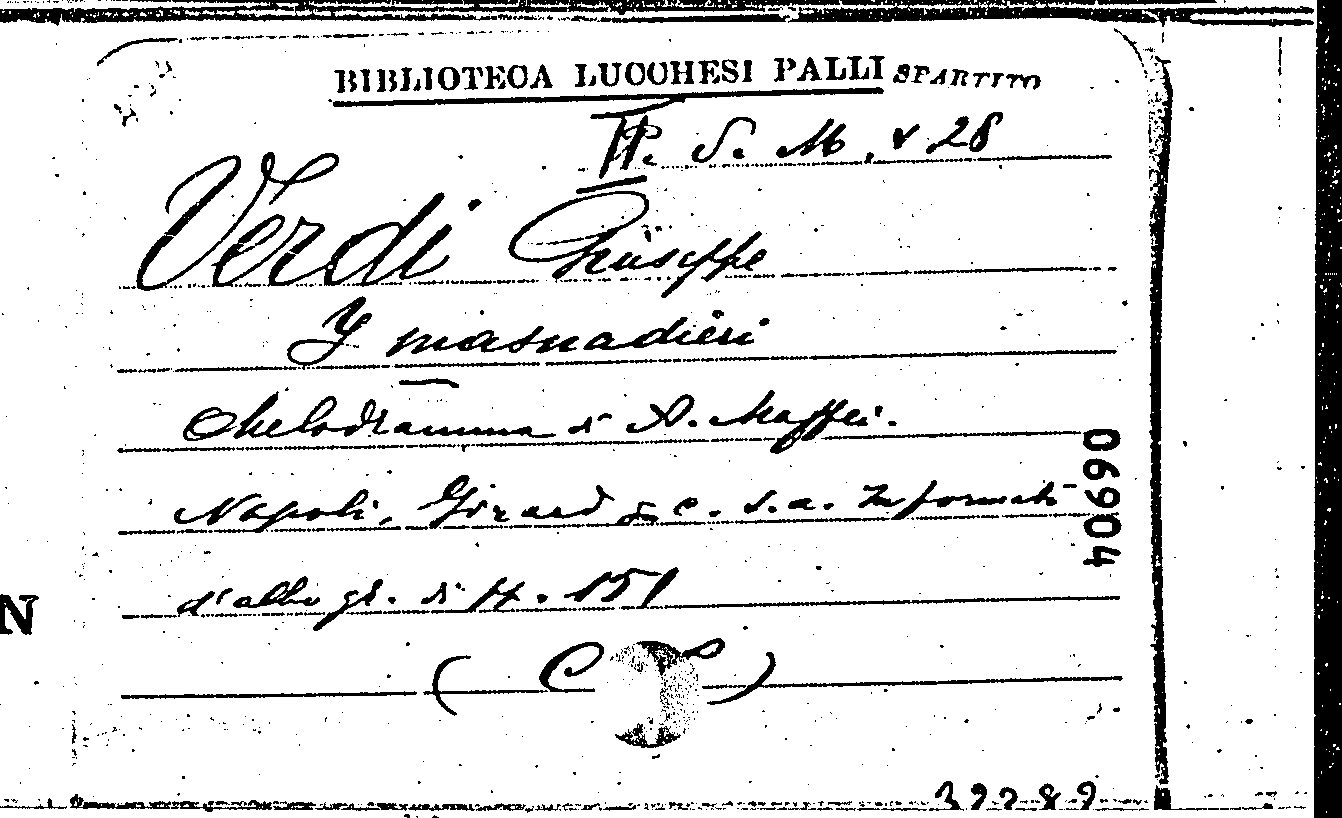 BIBLIOTECA LUCCHESI PALLI SPARTITO
S. M. v 28
Verdi Giuseppe
I masnadieri
Melodramma di A. Maffei.
Napoli, Girard & C. s.a. In formato
d'albo gr. di ff. 151
06904
N